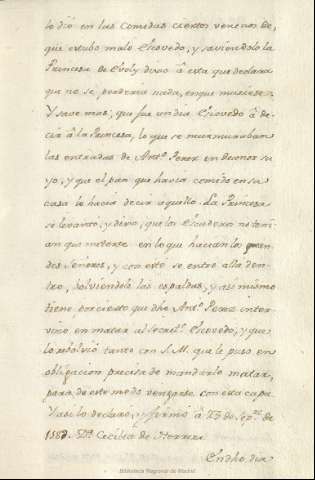 le dió en las Comidas ciertos venenos de,
que estubo malo Escovedo, y saviendolo la
Princesa de Evoly dixo â esta que declara
que no se perderia nada, en que muriese.
Y save mas, que fue un dia Escovedo â de-
cir â la Princesa, lo que se murmuraban
las entradas de Antº Perez en deonor su
yo, y que el pan que havia comido en su
casa le hacia decir aquello. La Princesa
se levanto, y dixo, que los Escuderos no teni-
an que meterse en lo que hacian los gran-
des Señores, y con esto se entro alla den-
tro, volviendole las espaldas, y asi mismo
tiene por cierto que dho Antº Perez inter-
vino en matar al Secretº Escovedo, y que
lo rebolvió tanto con S. M. que le puso en
obligacion precisa de mandarlo matar,
para de este modo vengarse con esta capa
Y asi lo declaro, y firmo â 23 de
158 Dª Cecilia de Herrera
En dho dia
Biblioteca Regional de Madrid